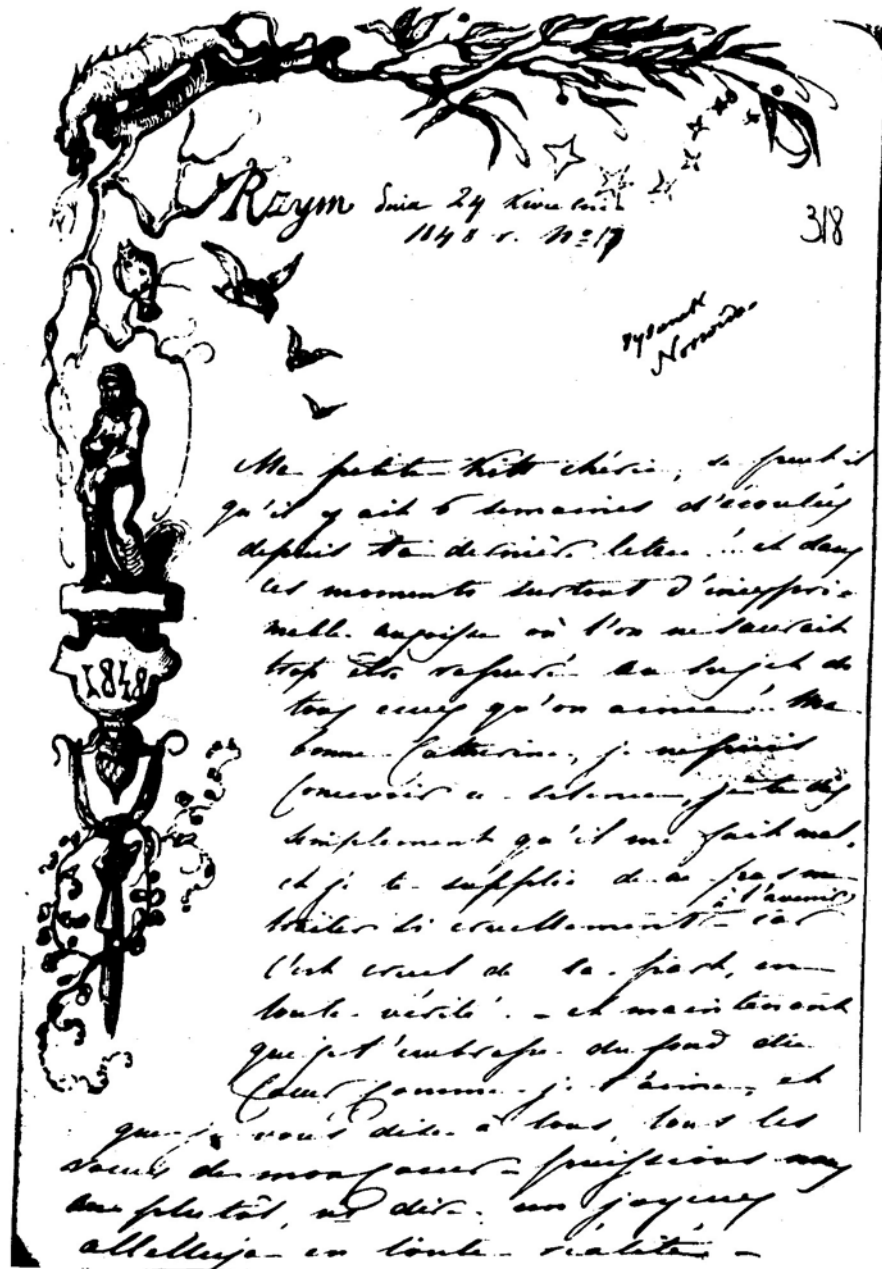 Rzym dnia 24 Kwietnia
1848 r. No 17
318
rysunek
Norwida
1848
Ma petite Kitt chérie, se peut il
qu'il y ait 6 semaines d'écoulées
depuis ta dernière lettre ! et dans
ces moments surtout d'inexpri-
mable angoisse où l'on ne saurait
trop être rassuré au sujet de
tous ceux qu'on aime ! Ma
bonne Catherine, je ne puis
concevoir ce silence, je te dis
simplement qu'il me fait mal,
et je te supplie de ne pas me
à l'avenir
traiter si cruellement - car
c'est cruel de ta part, en
toute vérité. - et maintenant
que je t'embrasse du fond du
Cœur comme je t'aime, et
que je vous dise à tous, tous les
vœux de mon Cœur - puissions nous
au plutôt, dire un joyeux
allelluja en toute réalité -